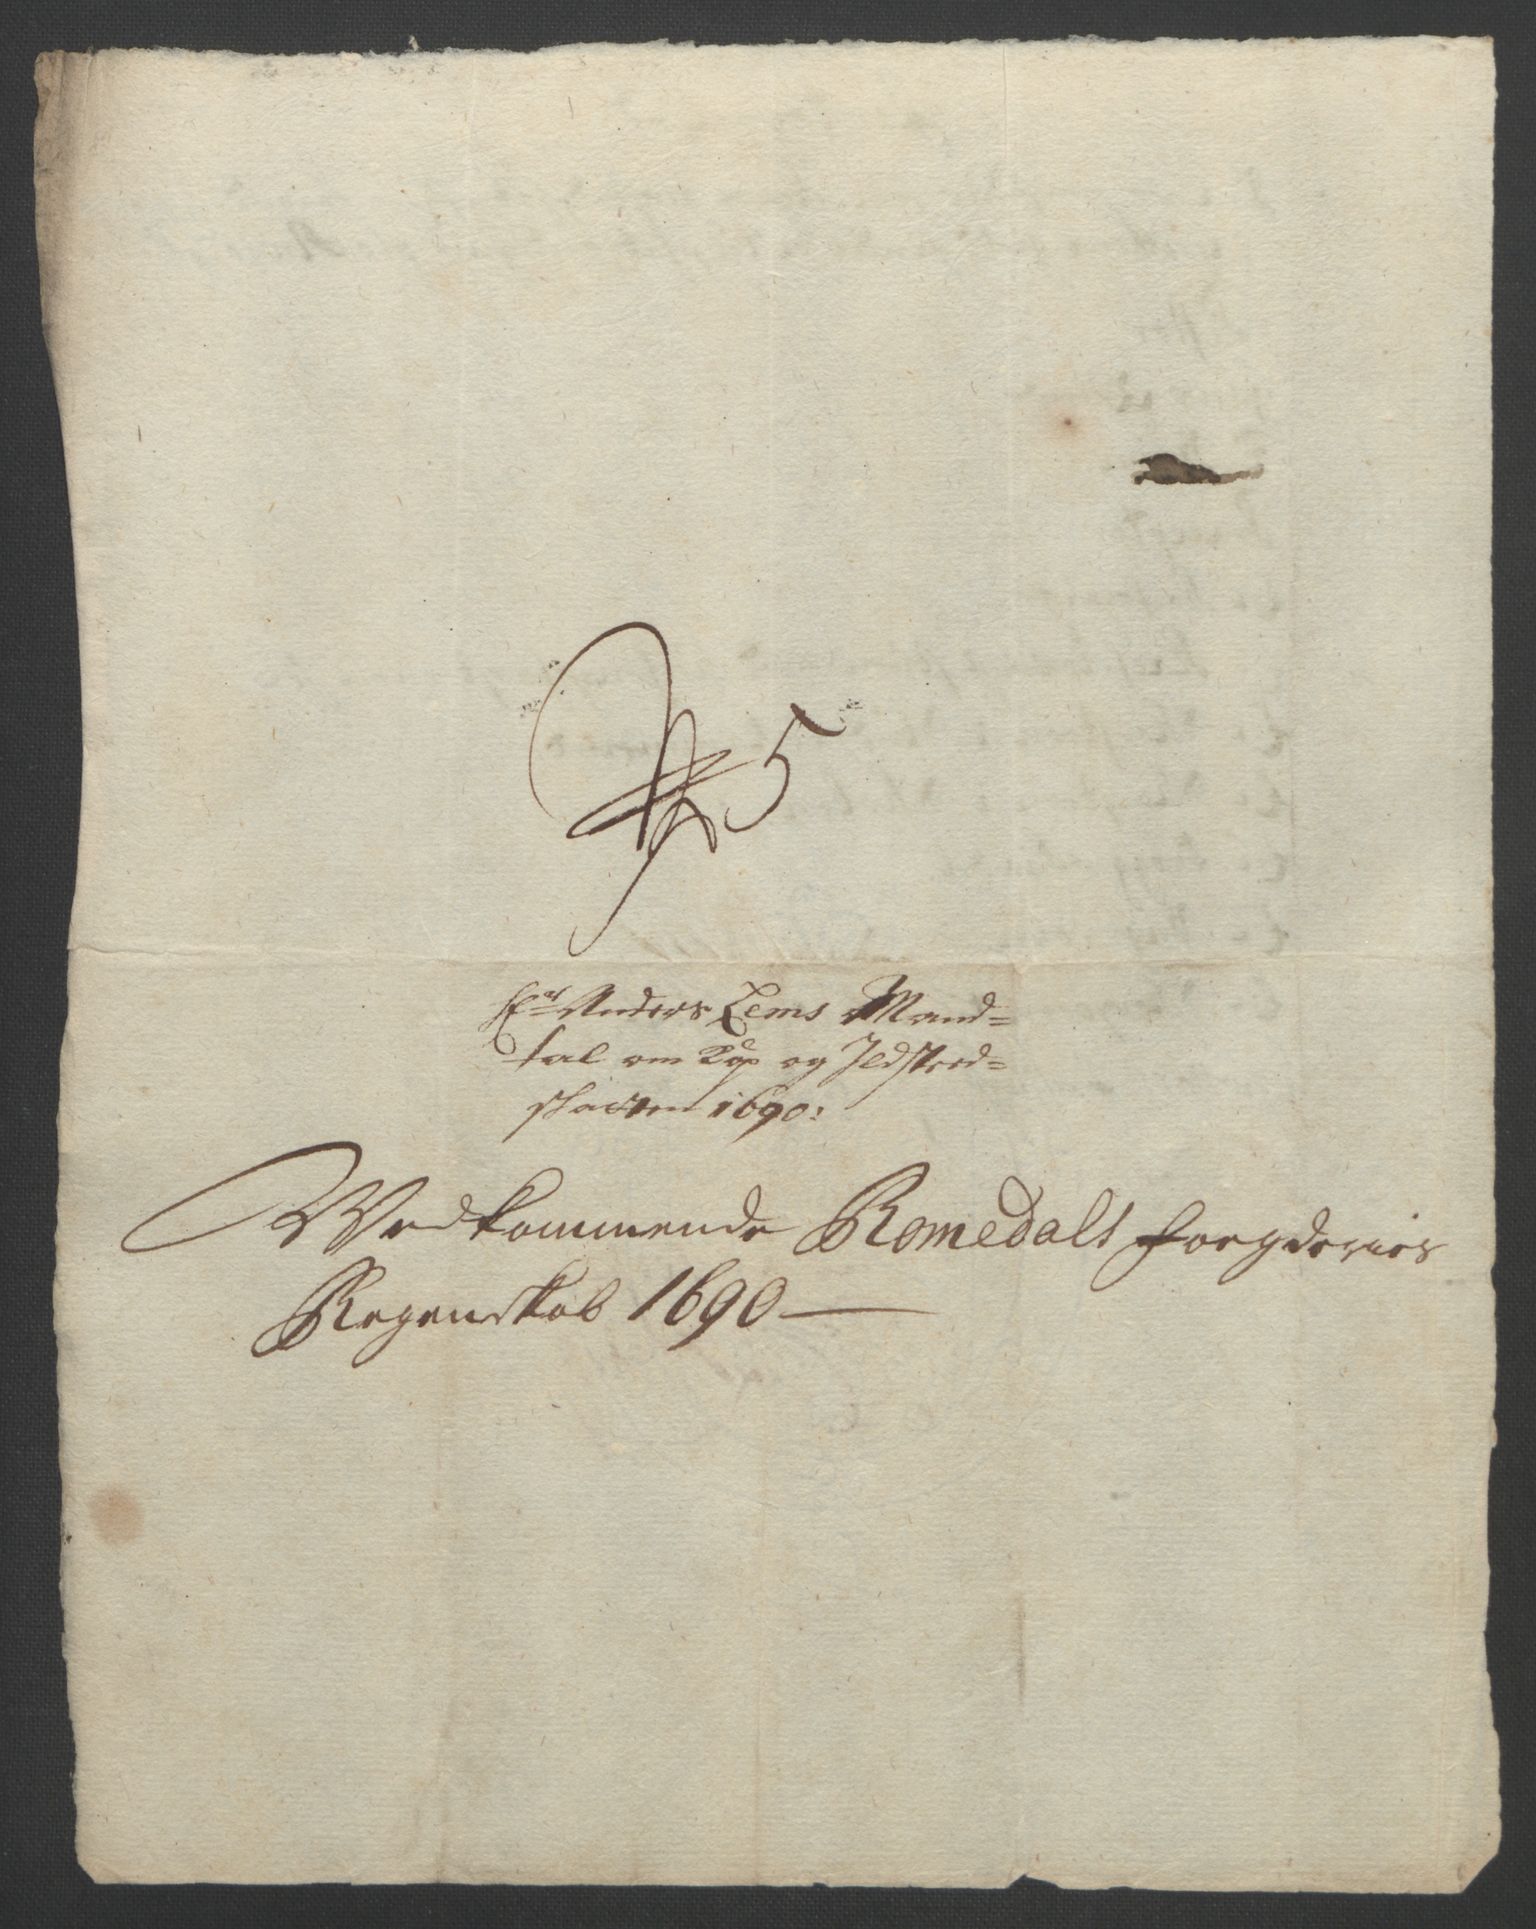 № 5
Hr Anders Lems Mand=
tal om Kop og Ildsted=
skatten 1690:
Vedkommende Romedals fougderies
Regenskab 1690